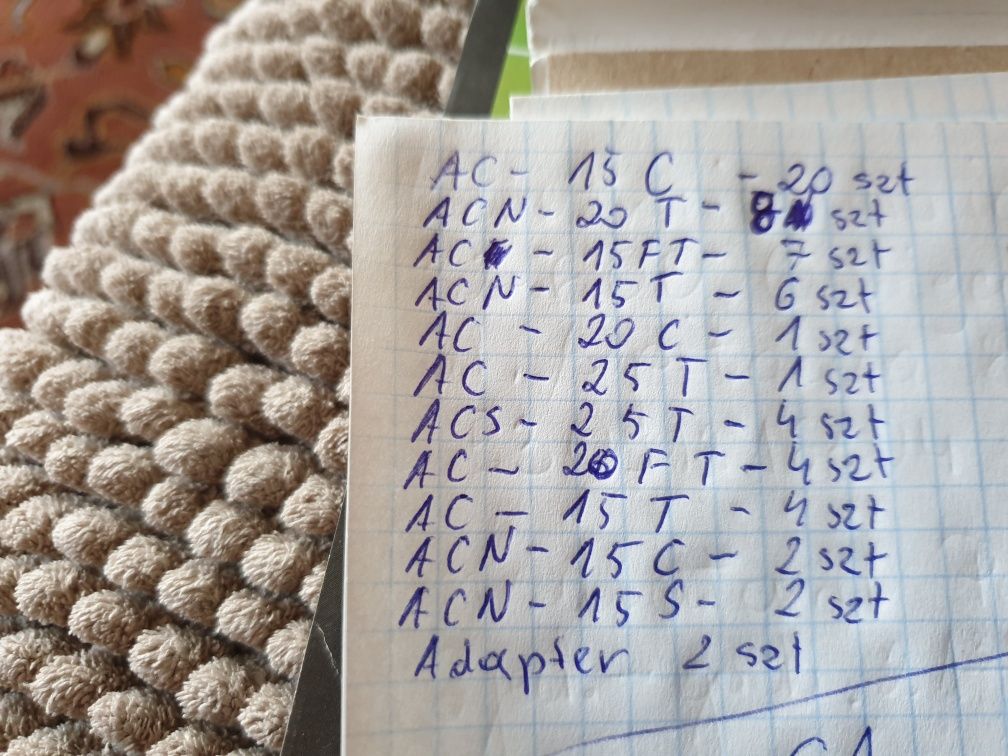 AC - 15 C - 20 szt
ACN - 20 T - 8 szt
AC - 15 FT - 7 szt
ACN - 15 T - 6 szt
AC - 20 C - 1 szt
AC - 25 T - 1 szt
ACS - 25 T - 4 szt
AC - 20 FT - 4 szt
AC - 15 T - 4 szt
ACN - 15 C - 2 szt
ACN - 15 S - 2 szt
Adapter 2 szt